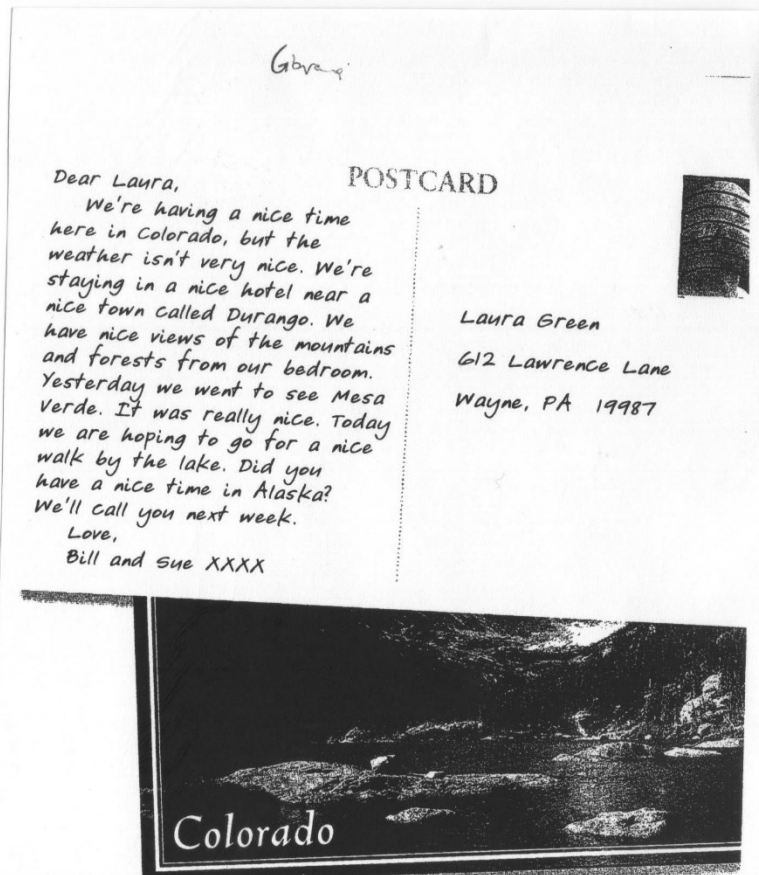 POSTCARD
Dear Laura,
We're having a nice time
here in Colorado, but the
weather isn't very nice. We're
staying in a nice hotel near a
nice town called Durango. We
have nice views of the mountains
and forests from our bedroom.
Yesterday we went to see Mesa
Verde. It was really nice. Today
we are hoping to go for a nice
walk by the lake. Did you
have a nice time in Alaska?
We'll call you next week.
Love,
Bill and Sue XXXX
Laura Green
612 Lawrence Lane
Wayne, PA 19987
Colorado